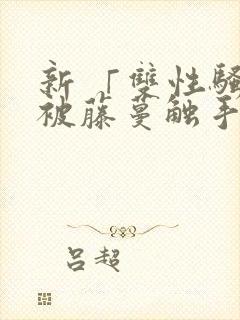 新「雙性騷
被藤蔓触手
吕超